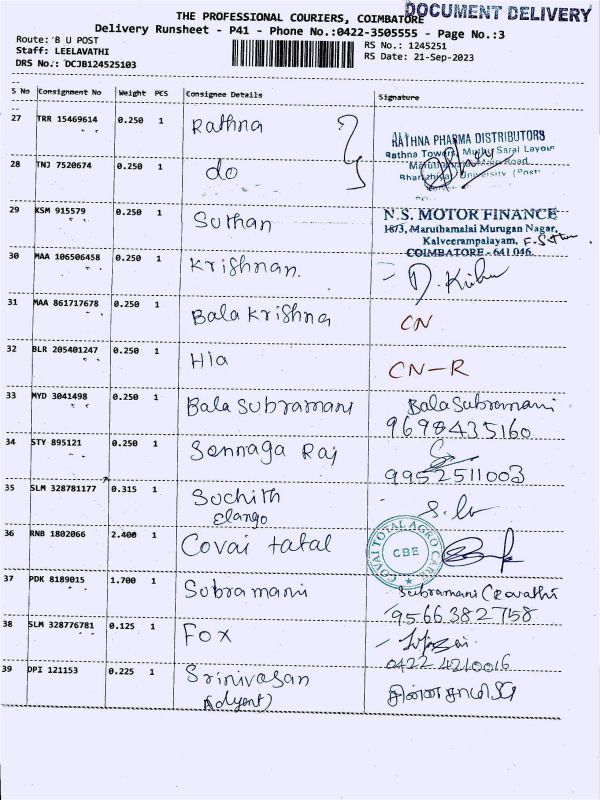 DOCUMENT DELIVERY
THE PROFESSIONAL COURIERS, COIMBATORE
Delivery Runsheet - P41 - Phone No.:0422-3505555 - Page No.:3
Route: B U POST
Staff: LEELAVATHI
DRS No.: DCJB124525103
RS No.: 1245251
RS Date: 21-Sep-2023
S No Consignment No Weight PCS Consignee Details Signature
27 TRR 15469614 0.250 1 Rathna
RATHNA PHARMA DISTRIBUTORS
28 TNJ 7520674 0.250 1 do
29 KSM 915579 0.250 1 Suthan
N.S. MOTOR FINANCE
18/3, Maruthamalai Murugan Nagar,
Kalveerampalayam,
COIMBATORE - 641 046.
30 MAA 106506458 0.250 1 Krishnan.
31 MAA 861717678 0.250 1 Bala Krishna CN
32 BLR 205401247 0.250 1 Hia CN-R
33 MYD 3041498 0.250 1 Bala Subramani Bala Subramani
9698435160
34 STY 895121 0.250 1 Sennaga Raj
9952511003
35 SLM 328781177 0.315 1 Suchith
Elango
36 RNB 1802066 2.400 1 Covai total COVAI TOTAL AGRO CARE CBE
37 PDK 8189015 1.700 1 Subramani Subramani (Revathi
9566382758
38 SLM 328776781 0.125 1 Fox
0422 4210016
39 DPI 121153 0.225 1 Srinivasan